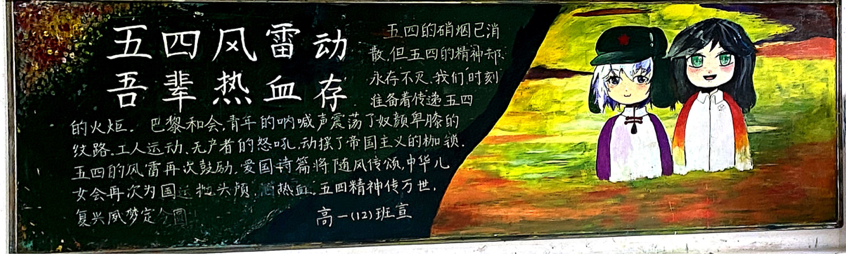 五四风雷动
吾辈热血存
五四的硝烟已消
散,但五四的精神却
永存不灭、我们时刻
准备着传递五四
的火炬。巴黎和会,青年的呐喊声震荡了奴颜卑膝的
纹路.工人运动、无产者的怒吼,动摇了帝国主义的枷锁.
五四的风雷再次鼓励,爱国诗篇将随风传颂,中华儿
女会再次为国 抛头颅, 热血.五四精神传万世.
复兴 梦定今圆
高一(12)班宣